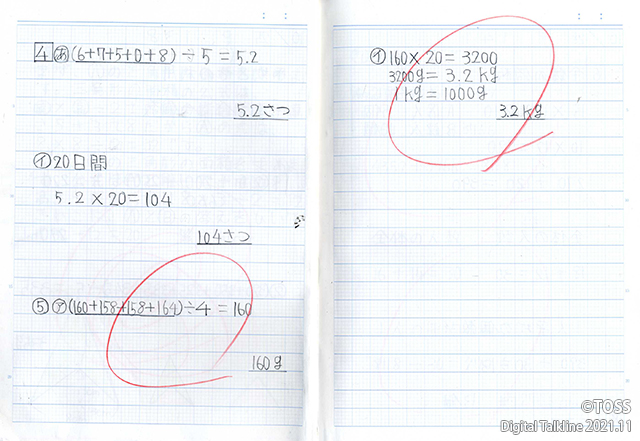 4 あ (6+7+5+0+8)÷5=5.2
5.2さつ
イ 20日間
5.2×20=104
104さつ
⑤ ア (160+158+158+164)÷4=160
160g
イ 160×20=3200
3200g=3.2kg
1kg=1000g
3.2kg
©TOSS
Digital Talkline 2021.11